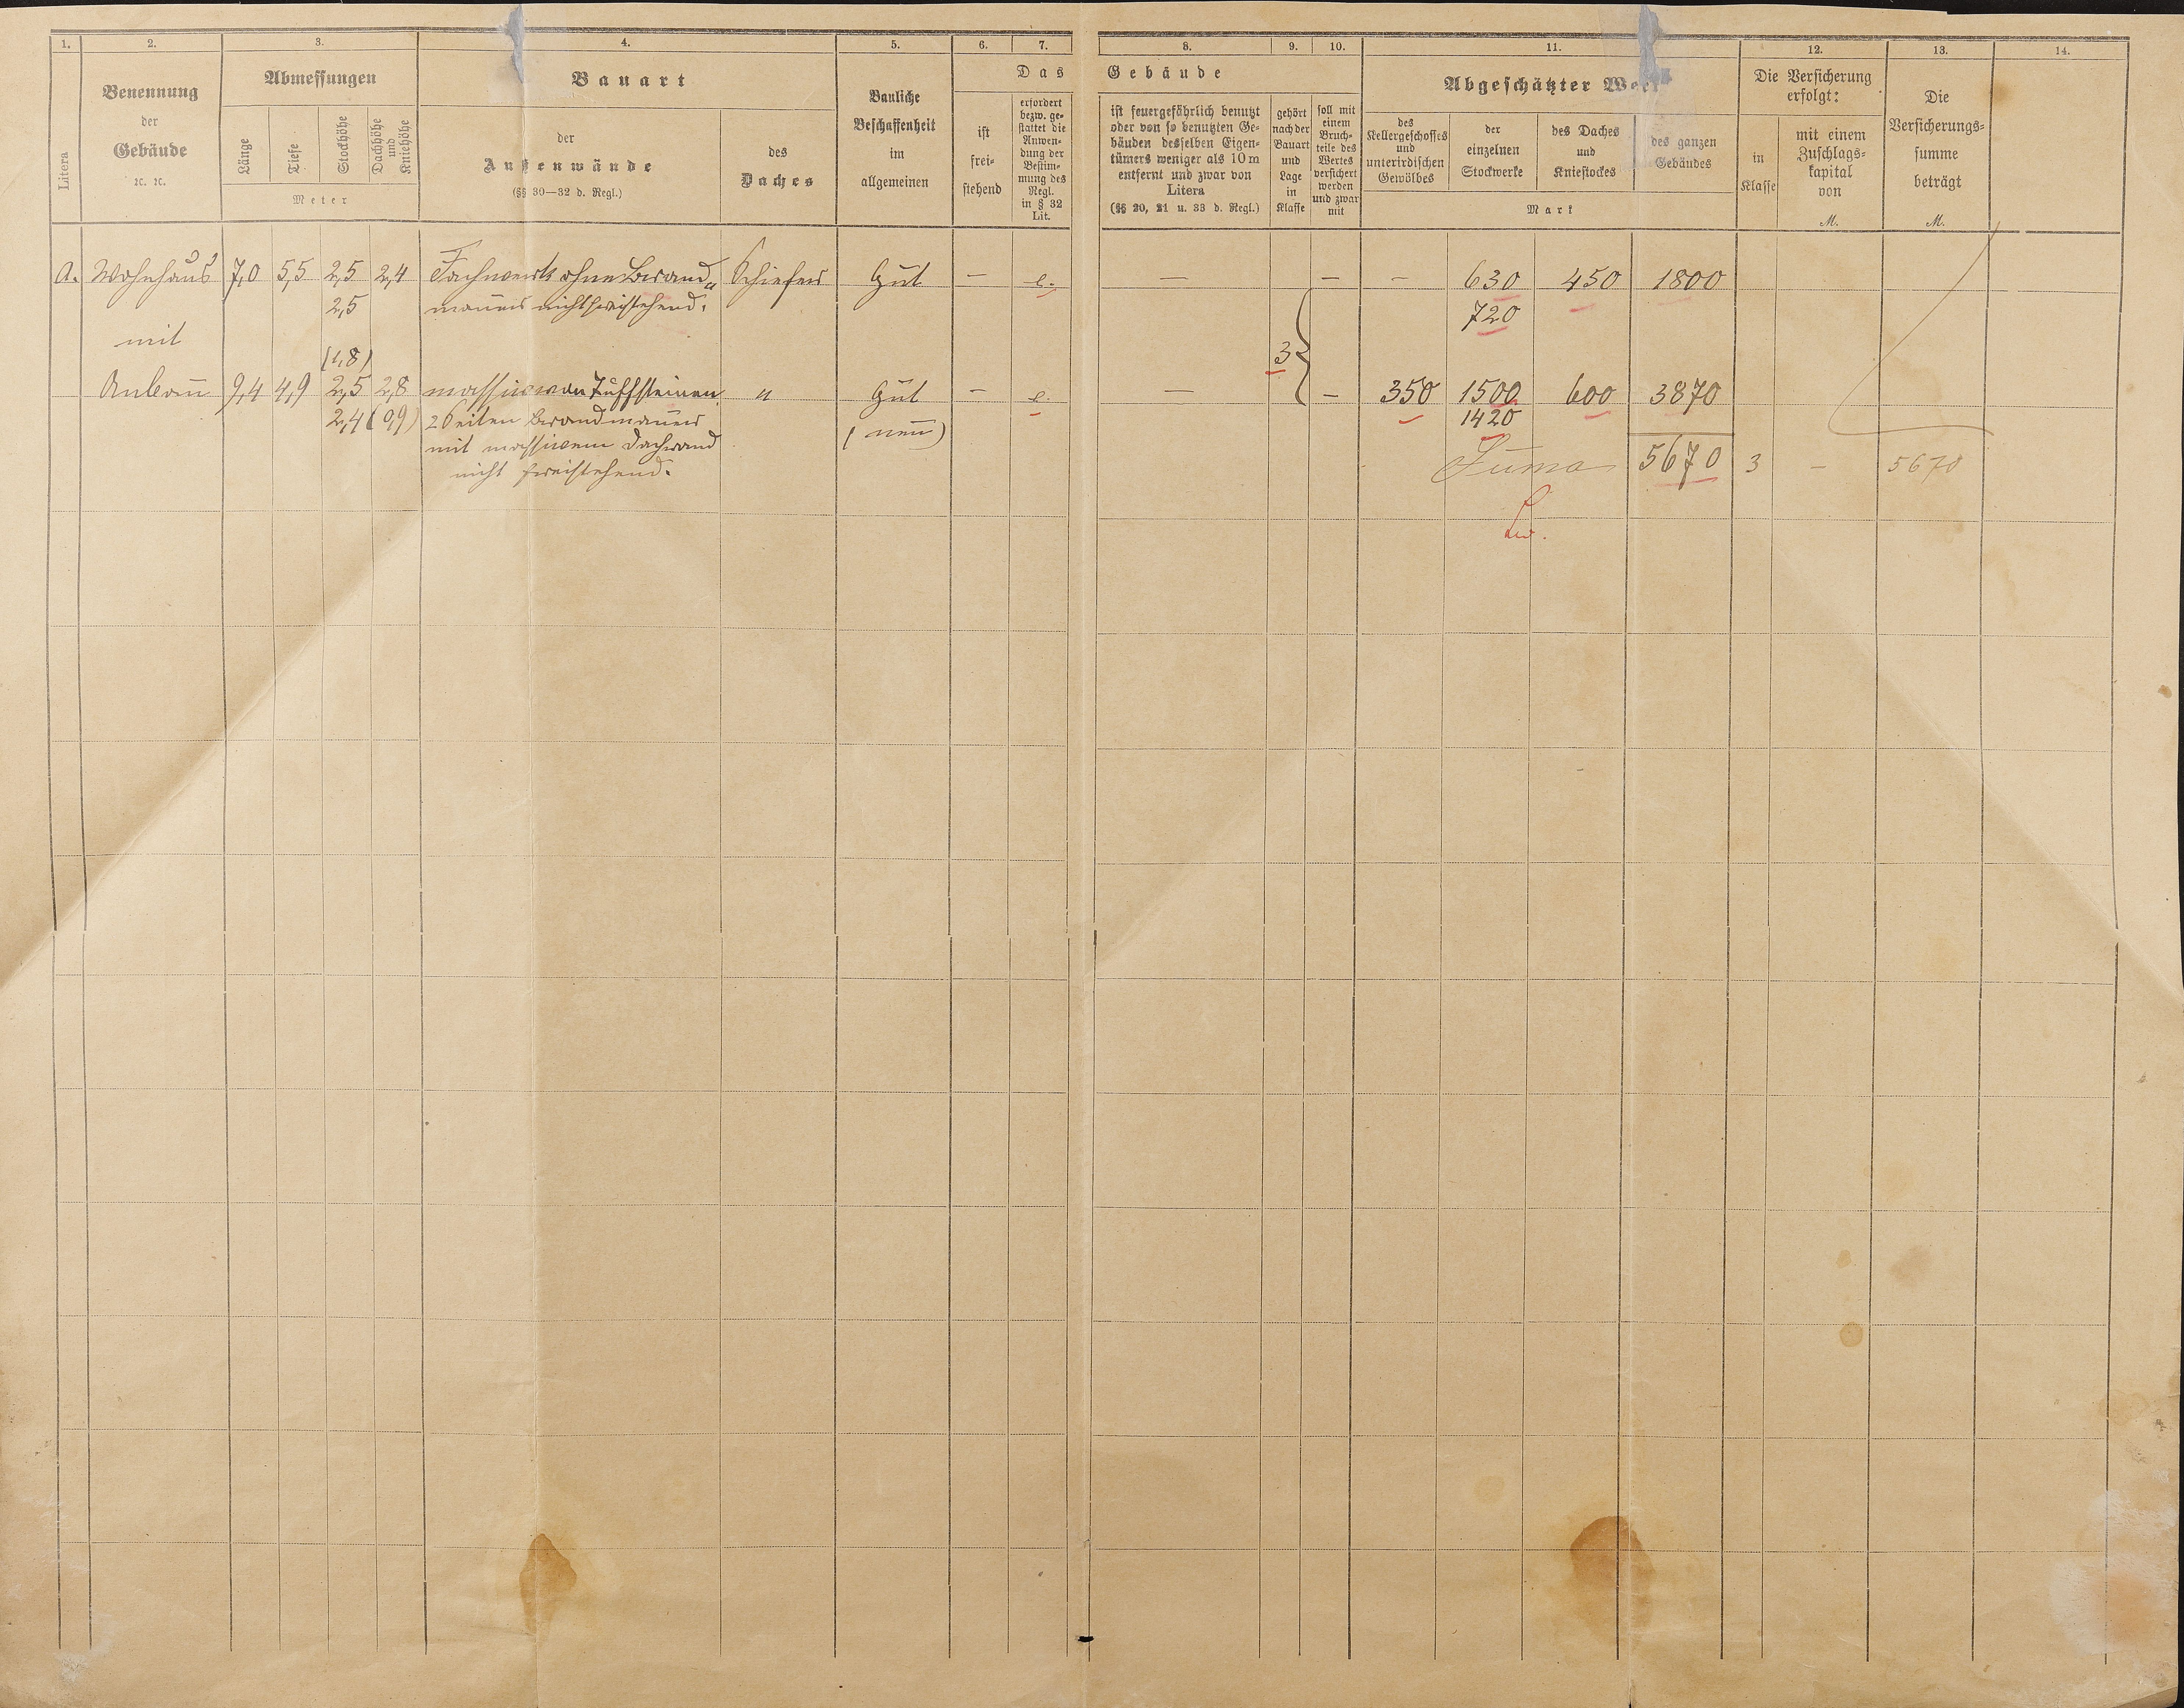 1.
2.
3.
4.
5.
6.
7.
8.
9.
10.
11.
12.
13.
14.
Litera
Benennung
der
Gebäude
ꝛc. ꝛc.
Abmessungen
Länge
Tiefe
Stockhöhe
Dachhöhe
und
Kniehöhe
Meter
Bauart
der
Außenwände
(§§ 30—32 d. Regl.)
des
Daches
Bauliche
Beschaffenheit
im
allgemeinen
Das
ist
frei-
stehend
erfordert
bezw. ge-
stattet die
Anwen-
dung der
Bestim-
mung des
Regl.
in § 32
Lit.
Gebäude
ist feuergefährlich benutzt
oder von so benutzten Ge-
bäuden desselben Eigen-
tümers weniger als 10 m
entfernt und zwar von
Litera
(§§ 20, 21 u. 33 d. Regl.)
gehört
nach der
Bauart
und
Lage
in
Klasse
soll mit
einem
Bruch-
teile des
Wertes
versichert
werden
und zwar
mit
Abgeschätzter Wert
des
Kellergeschosses
und
unterirdischen
Gewölbes
der
einzelnen
Stockwerke
des Daches
und
Kniestockes
des ganzen
Gebäudes
Mark
Die Versicherung
erfolgt:
in
Klasse
mit einem
Zuschlags-
kapital
von
M.
Die
Versicherungs-
summe
beträgt
M.
A. Wohnhaus 7,0 5,5 2,5 2,4 Fachwerk ohne Brand„ Schiefer Gut — e. — — — 630 450 1800
2,5 mauer nicht freistehend. 720
mit
(1,8) 3
Anbau 9,4 4,9 2,5 2,8 massiv von Tuffsteinen " Gut — e. — — 350 1500 600 3870
2,4 (0,9) 2 Seiten Brandmauer (neu) 1420
mit massivem Dachwand
nicht freistehend. Suma 5670 3 — 5670